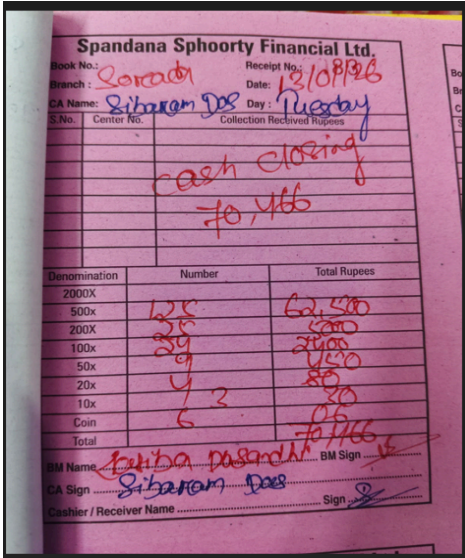 Spandana Sphoorty Financial Ltd.
Book No.: Receipt No.:
Branch : Soreada Date: 13/01/26
CA Name: Sibaram Das Day : Tuesday
S.No. Center No. Collection Received Rupees
cash closing
70,466
Denomination Number Total Rupees
2000X
500x 125 62,500
200X 25 5000
100x 24 2400
50x 9 450
20x 4 80
10x 3 30
Coin 6 06
Total 70,466
BM Name BM Sign
CA Sign Sibaram Das
Cashier / Receiver Name Sign